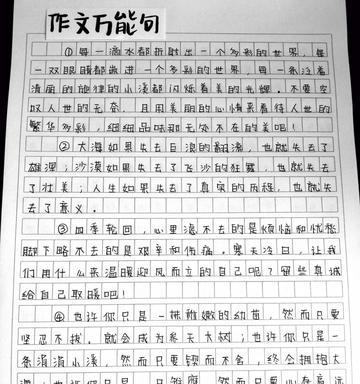 作文万能句
①每一滴水都折射出一个多彩的世界,每
一双眼睛都映进一个多彩的世界,每一条泛着
清丽的旋律的小溪都闪烁着美的光辉。不要空
叹人世的无奈,且用美丽的心情来看待人世的
繁华多彩,细细品味那无处不在的美吧!
②大海如果失去巨浪的翻滚,也就失去了
雄浑;沙漠如果失去了飞沙的狂舞,也就失去
了壮美;人生如果失去了真实的历程,也就失
去了意义。
③四季轮回,心里滤不去的是烦恼和忧愁
脚下略不去的是艰辛和伤痛。寒天冷日,让我
们用什么来温暖迎风而立的自己呢?留些真诚
给自己取暖吧!
④也许你只是一株稚嫩的幼苗,然而只要
坚忍不拔,就会成为参天大树;也许你只是一
条涓涓小溪,然而只要锲而不舍,终会拥抱大